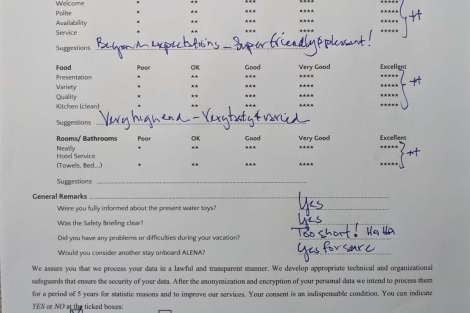 Welcome * ** *** **** *****
Polite * ** *** **** *****
Availability * ** *** **** *****
Service * ** *** **** *****
Suggestions Beyond my expectations - Super friendly & pleasant!
Food Poor OK Good Very Good Excellent
Presentation * ** *** **** *****
Variety * ** *** **** *****
Quality * ** *** **** *****
Kitchen (clean) * ** *** **** *****
Suggestions Very high end - Very tasty & varied
Rooms/ Bathrooms Poor OK Good Very Good Excellent
Neatly * ** *** **** *****
Hotel Service
(Towels, Bed...) * ** *** **** *****
Suggestions
General Remarks
Were you fully informed about the present water toys? Yes
Was the Safety Briefing clear? Yes
Did you have any problems or difficulties during your vacation? Too short! Ha Ha
Would you consider another stay onboard ALENA? Yes for sure
We assure you that we process your data in a lawful and transparent manner. We develop appropriate technical and organizational
safeguards that ensure the security of your data. After the anonymization and encryption of your personal data we intend to process them
for a period of 5 years for statistic reasons and to improve our services. Your consent is an indispensable condition. You can indicate
YES or NO at the ticked boxes: